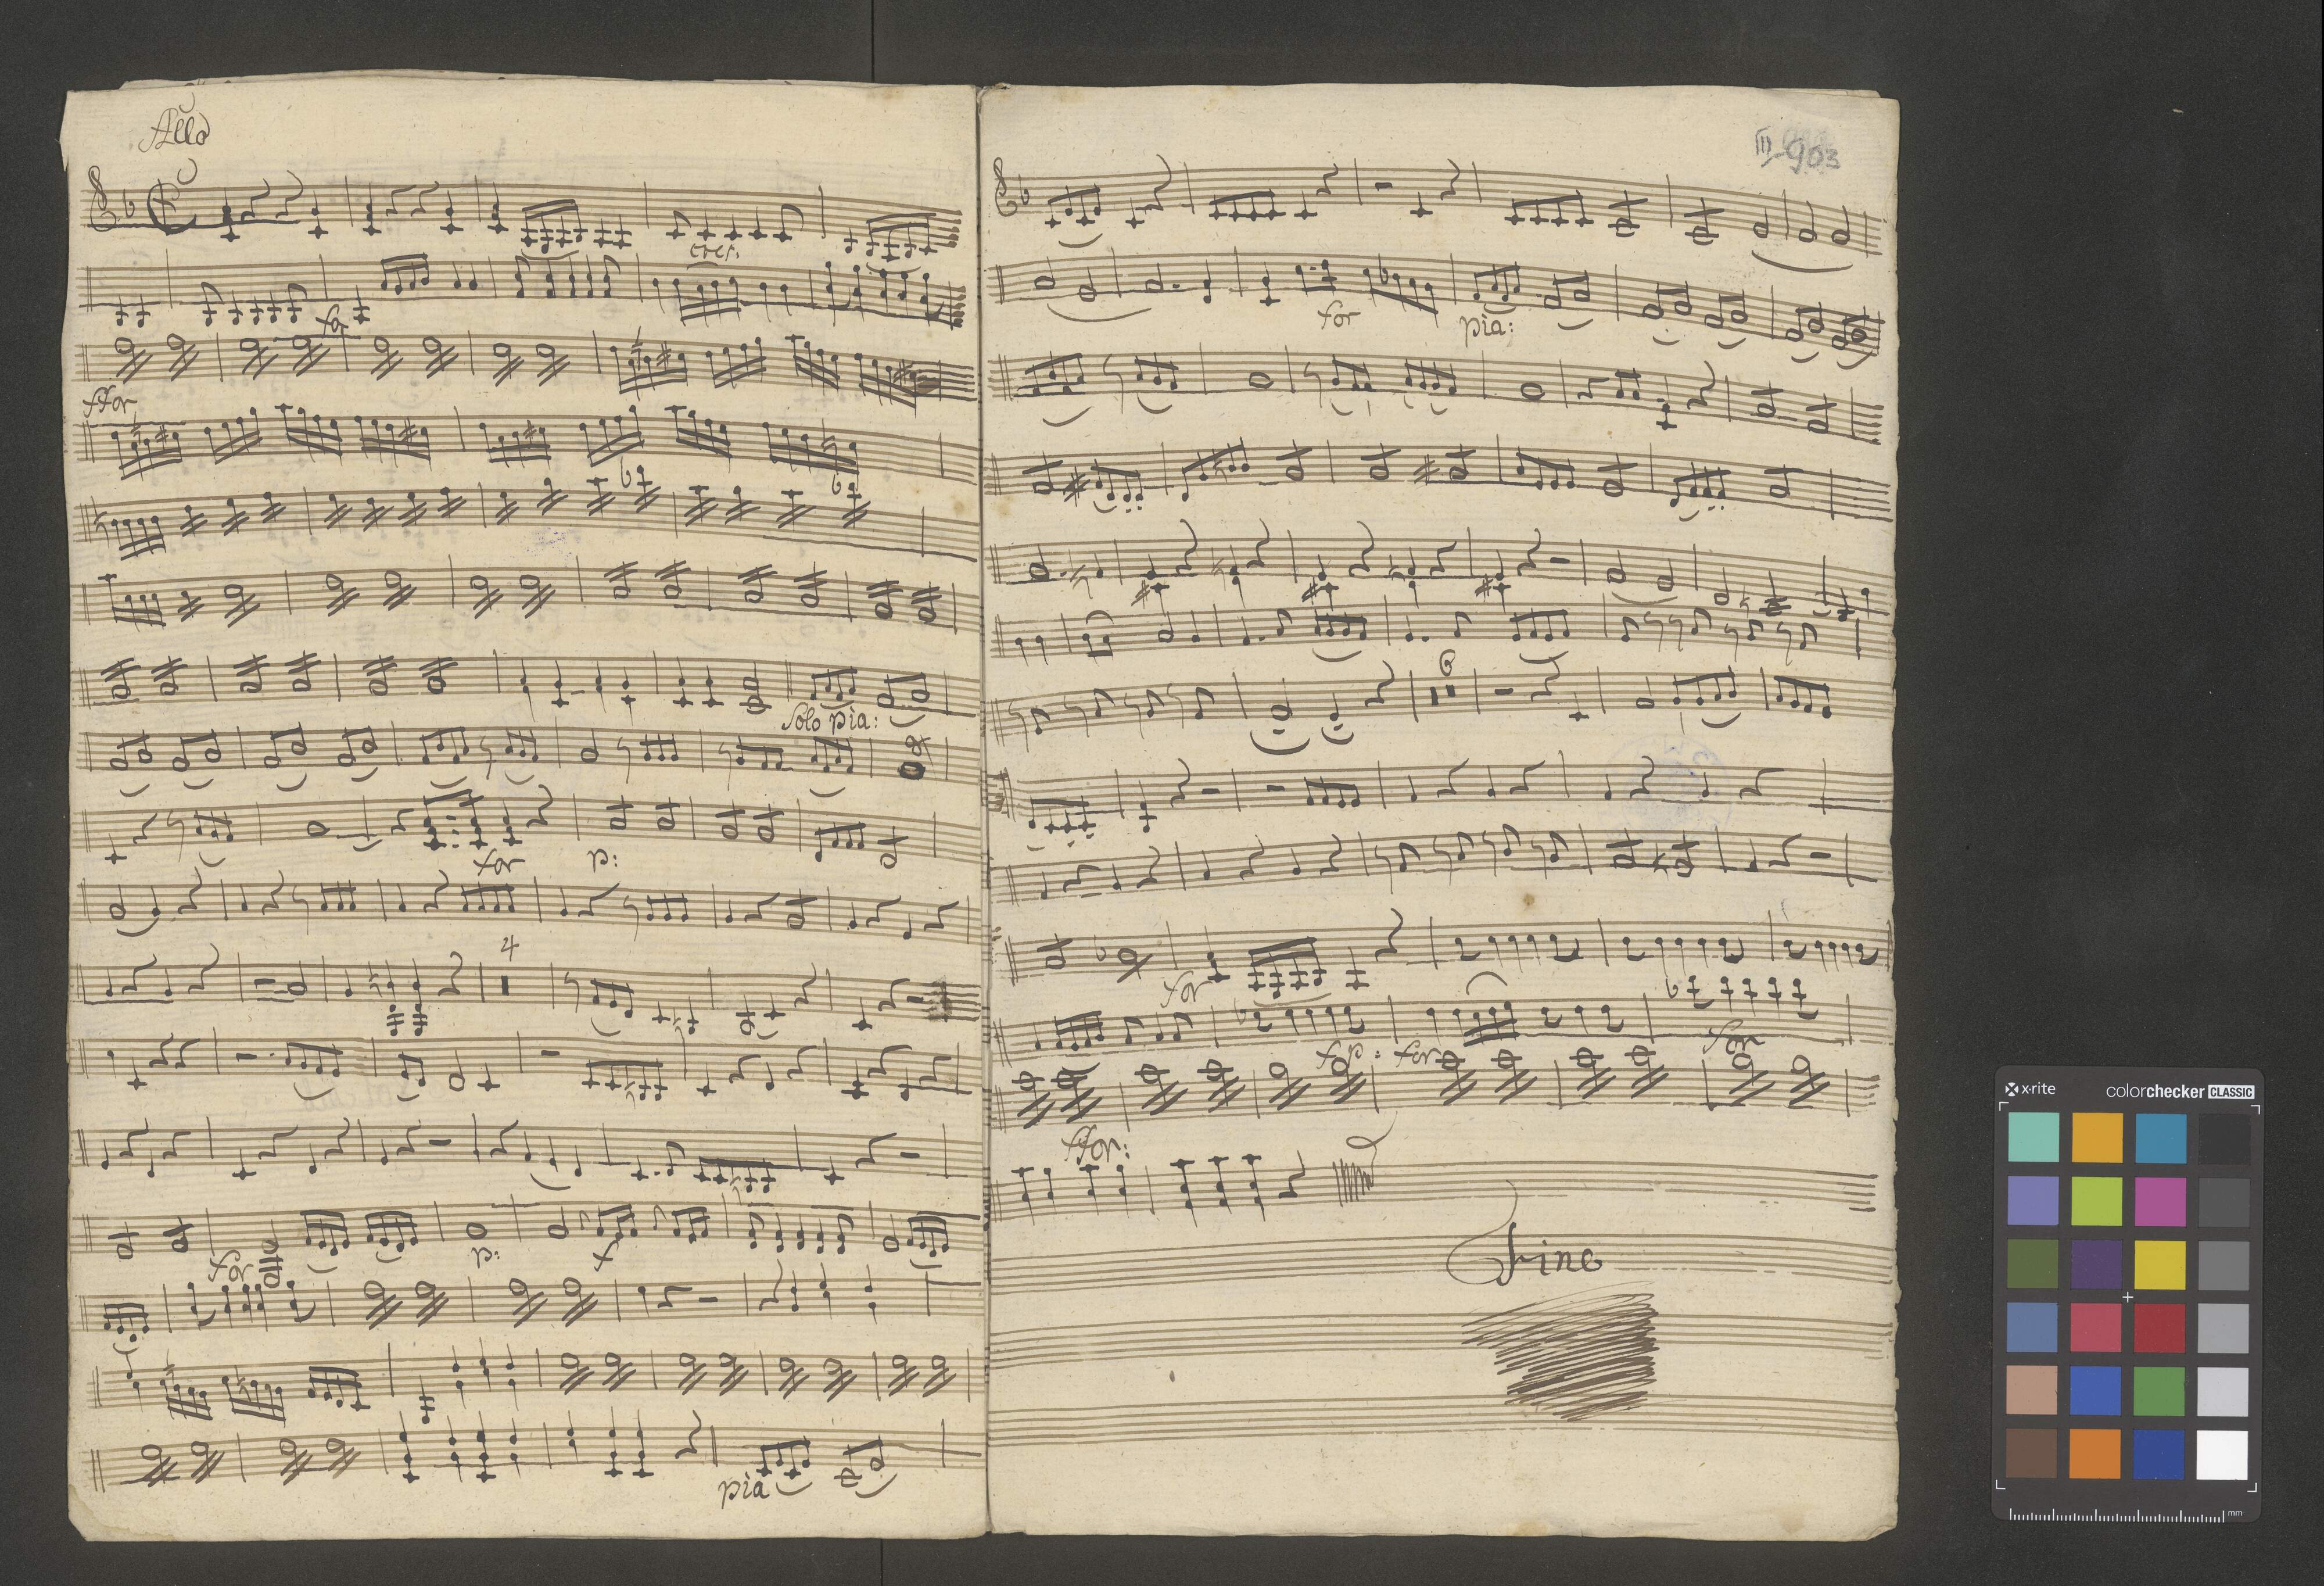 Allo
cresc.
for
ffor
Solo pia:
for p:
4
for p: f
pia
III 903
for pia:
6
for
fp: for for
ffor:
Fine
x·rite colorchecker CLASSIC
mm